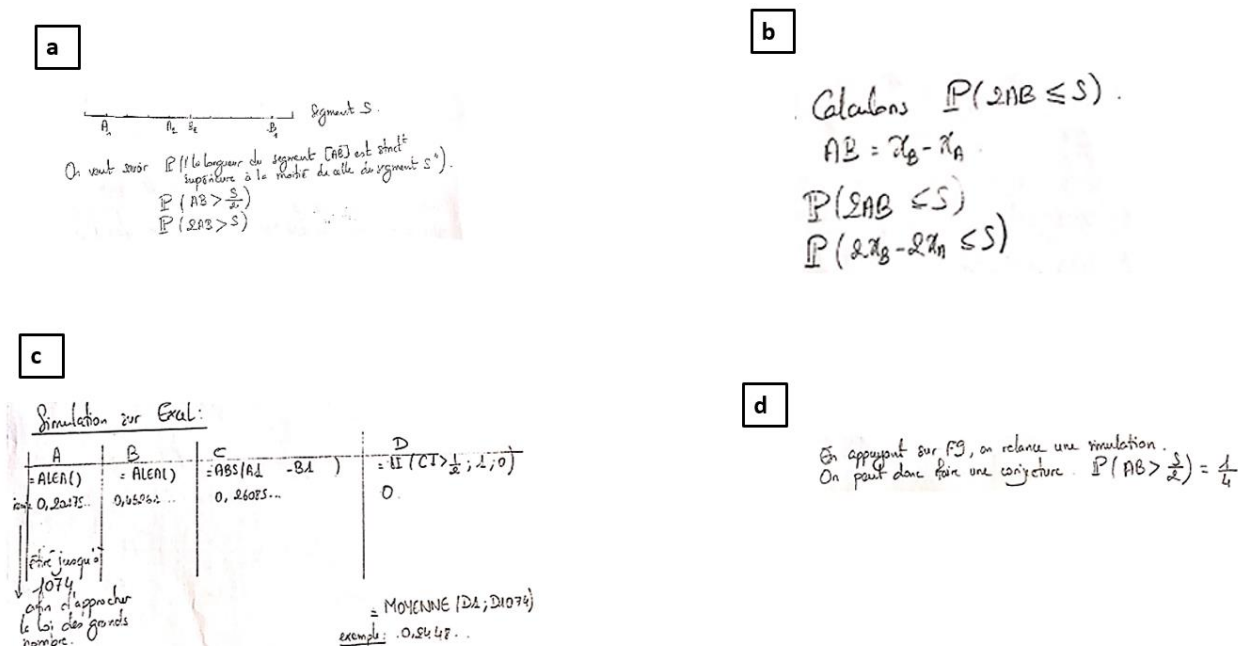 a
Segment S.
A₁ A₂ B₂ B₁
On veut savoir P("la longueur du segment [AB] est strictt
supérieure à la moitié de celle du segment S").
P(AB > S/2)
P(2AB > S)
b
Calculons P(2AB ≤ S).
AB = x_B - x_A
P(2AB ≤ S)
P(2x_B - 2x_A ≤ S)
c
Simulation sur Excel:
A B C D
=ALEA() =ALEA() =ABS(A1 -B1 ) =SI(C1>1/2;1;0)
0, 0, 0, 26085... 0.
étiré jusqu'à
1074
afin d'approcher
la loi des grands
nombre.
= MOYENNE(D1;D1074)
exemple: 0,2448..
d
En appuyant sur F9, on relance une simulation.
On peut donc faire une conjecture. P(AB > S/2) = 1/4